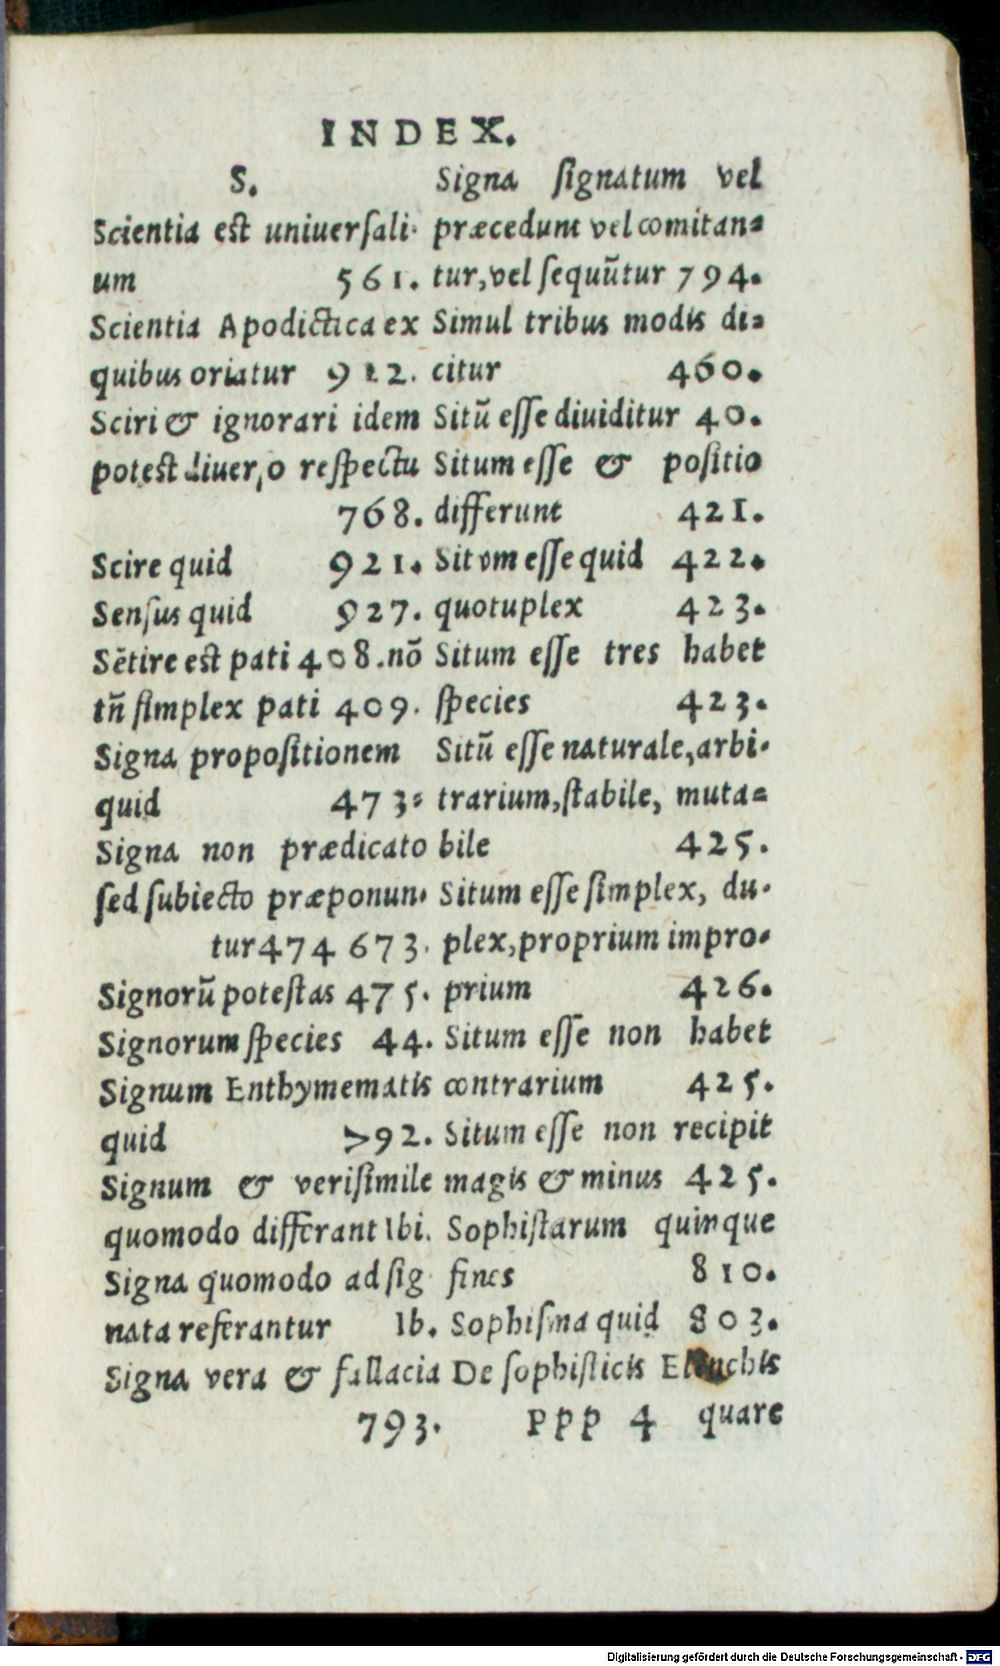 INDEX.
S.
Scientia est uniuersali-
um 561.
Scientia Apodictica ex
quibus oriatur 912.
Sciri & ignorari idem
potest diuerso respectu
768.
Scire quid 921.
Sensus quid 927.
Sētire est pati 408. nō
tñ simplex pati 409.
Signa propositionem
quid 473.
Signa non prædicato
sed subiecto præponun-
tur 474 673.
Signorū potestas 475.
Signorum species 44.
Signum Enthymematis
quid 792.
Signum & verisimile
quomodo differant Ibi.
Signa quomodo ad sig
nata referantur Ib.
Signa vera & fallacia
793.
Signa signatum vel
præcedunt vel comitan=
tur, vel sequūtur 794.
Simul tribus modis di=
citur 460.
Sitū esse diuiditur 40.
Situm esse & positio
differunt 421.
Situm esse quid 422.
quotuplex 423.
Situm esse tres habet
species 423.
Sitū esse naturale, arbi-
trarium, stabile, muta=
bile 425.
Situm esse simplex, du-
plex, proprium impro-
prium 426.
Situm esse non habet
contrarium 425.
Situm esse non recipit
magis & minus 425.
Sophistarum quinque
fines 810.
Sophisma quid 803.
De sophisticis Elenchis
PPP 4 quare
Digitalisierung gefördert durch die Deutsche Forschungsgemeinschaft - DFG